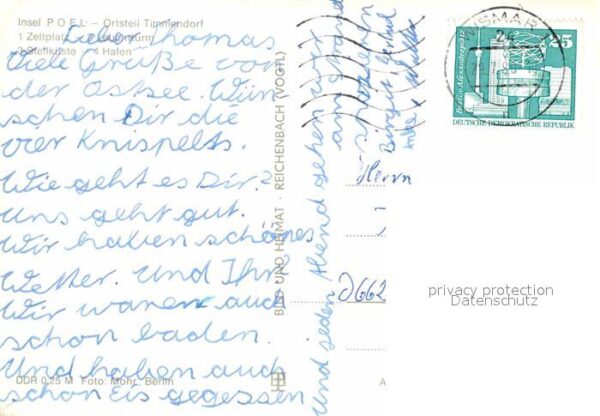 Insel POEL – Ortsteil Timmendorf
1 Zeltplatz 2 Leuchtturm
3 Steilküste 4 Hafen
Thomas
Viele Grüße von
der Ostsee. Wün
schen Dir die
vier Knispelts.
Wie geht es Dir?
Uns geht gut.
Wir haben schönes
Wetter. Und Ihr?
Wir waren auch
schon baden.
Und haben auch
schon Eis gegessen
Und jeden Abend gehen wir
am Strand
spazieren
DDR 0,25 M Foto: Mohr, Berlin
BILD UND HEIMAT · REICHENBACH (VOGTL)
WISMAR
24
Berlin, Alexanderplatz
25
DEUTSCHE DEMOKRATISCHE REPUBLIK
Herrn
662
A
privacy protection
Datenschutz